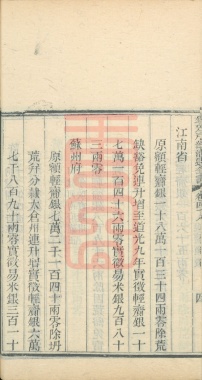 江南省
原額輕齎銀一十六萬一百三十四兩零除荒
缺豁免連升增至道光九年實徵輕齎銀一十
七萬一百四十六兩零實徵易米銀九百八十
三兩零
蘇州府
原額輕齎銀七萬二千一百四十兩零除坍
荒并分隷太倉州連升增實徵輕齎銀六萬
七千八百九十兩零實徵易米銀三百一十